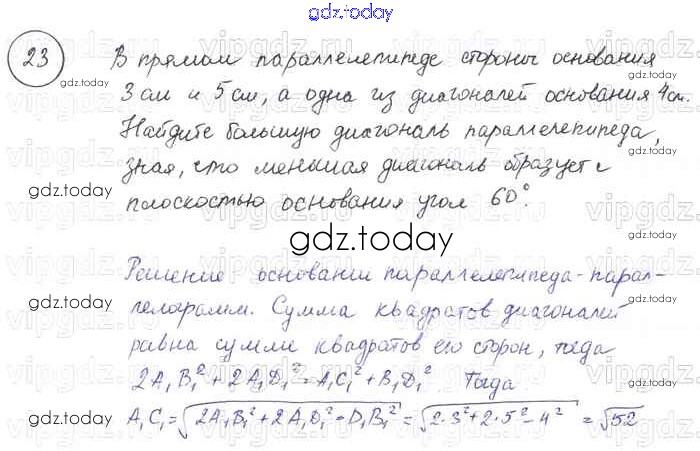 gdz.today
23
В прямом параллелепипеде стороны основания
gdz.today
3 см и 5 см, а одна из диагоналей основания 4 см.
Найдите большую диагональ параллелепипеда,
зная, что меньшая диагональ образует с
gdz.today
gdz.today
плоскостью основания угол 60°.
gdz.today
Решение основании параллелепипеда - парал-
gdz.today
gdz.today
лелограмм. Сумма квадратов диагоналей
равна сумме квадратов его сторон, тогда
2A₁B₁² + 2A₁D₁² = A₁C₁² + B₁D₁². Тогда
gdz.today
gdz.today
A₁C₁ = √2A₁B₁² + 2A₁D₁² - D₁B₁² = √2·3² + 2·5² - 4² = √52